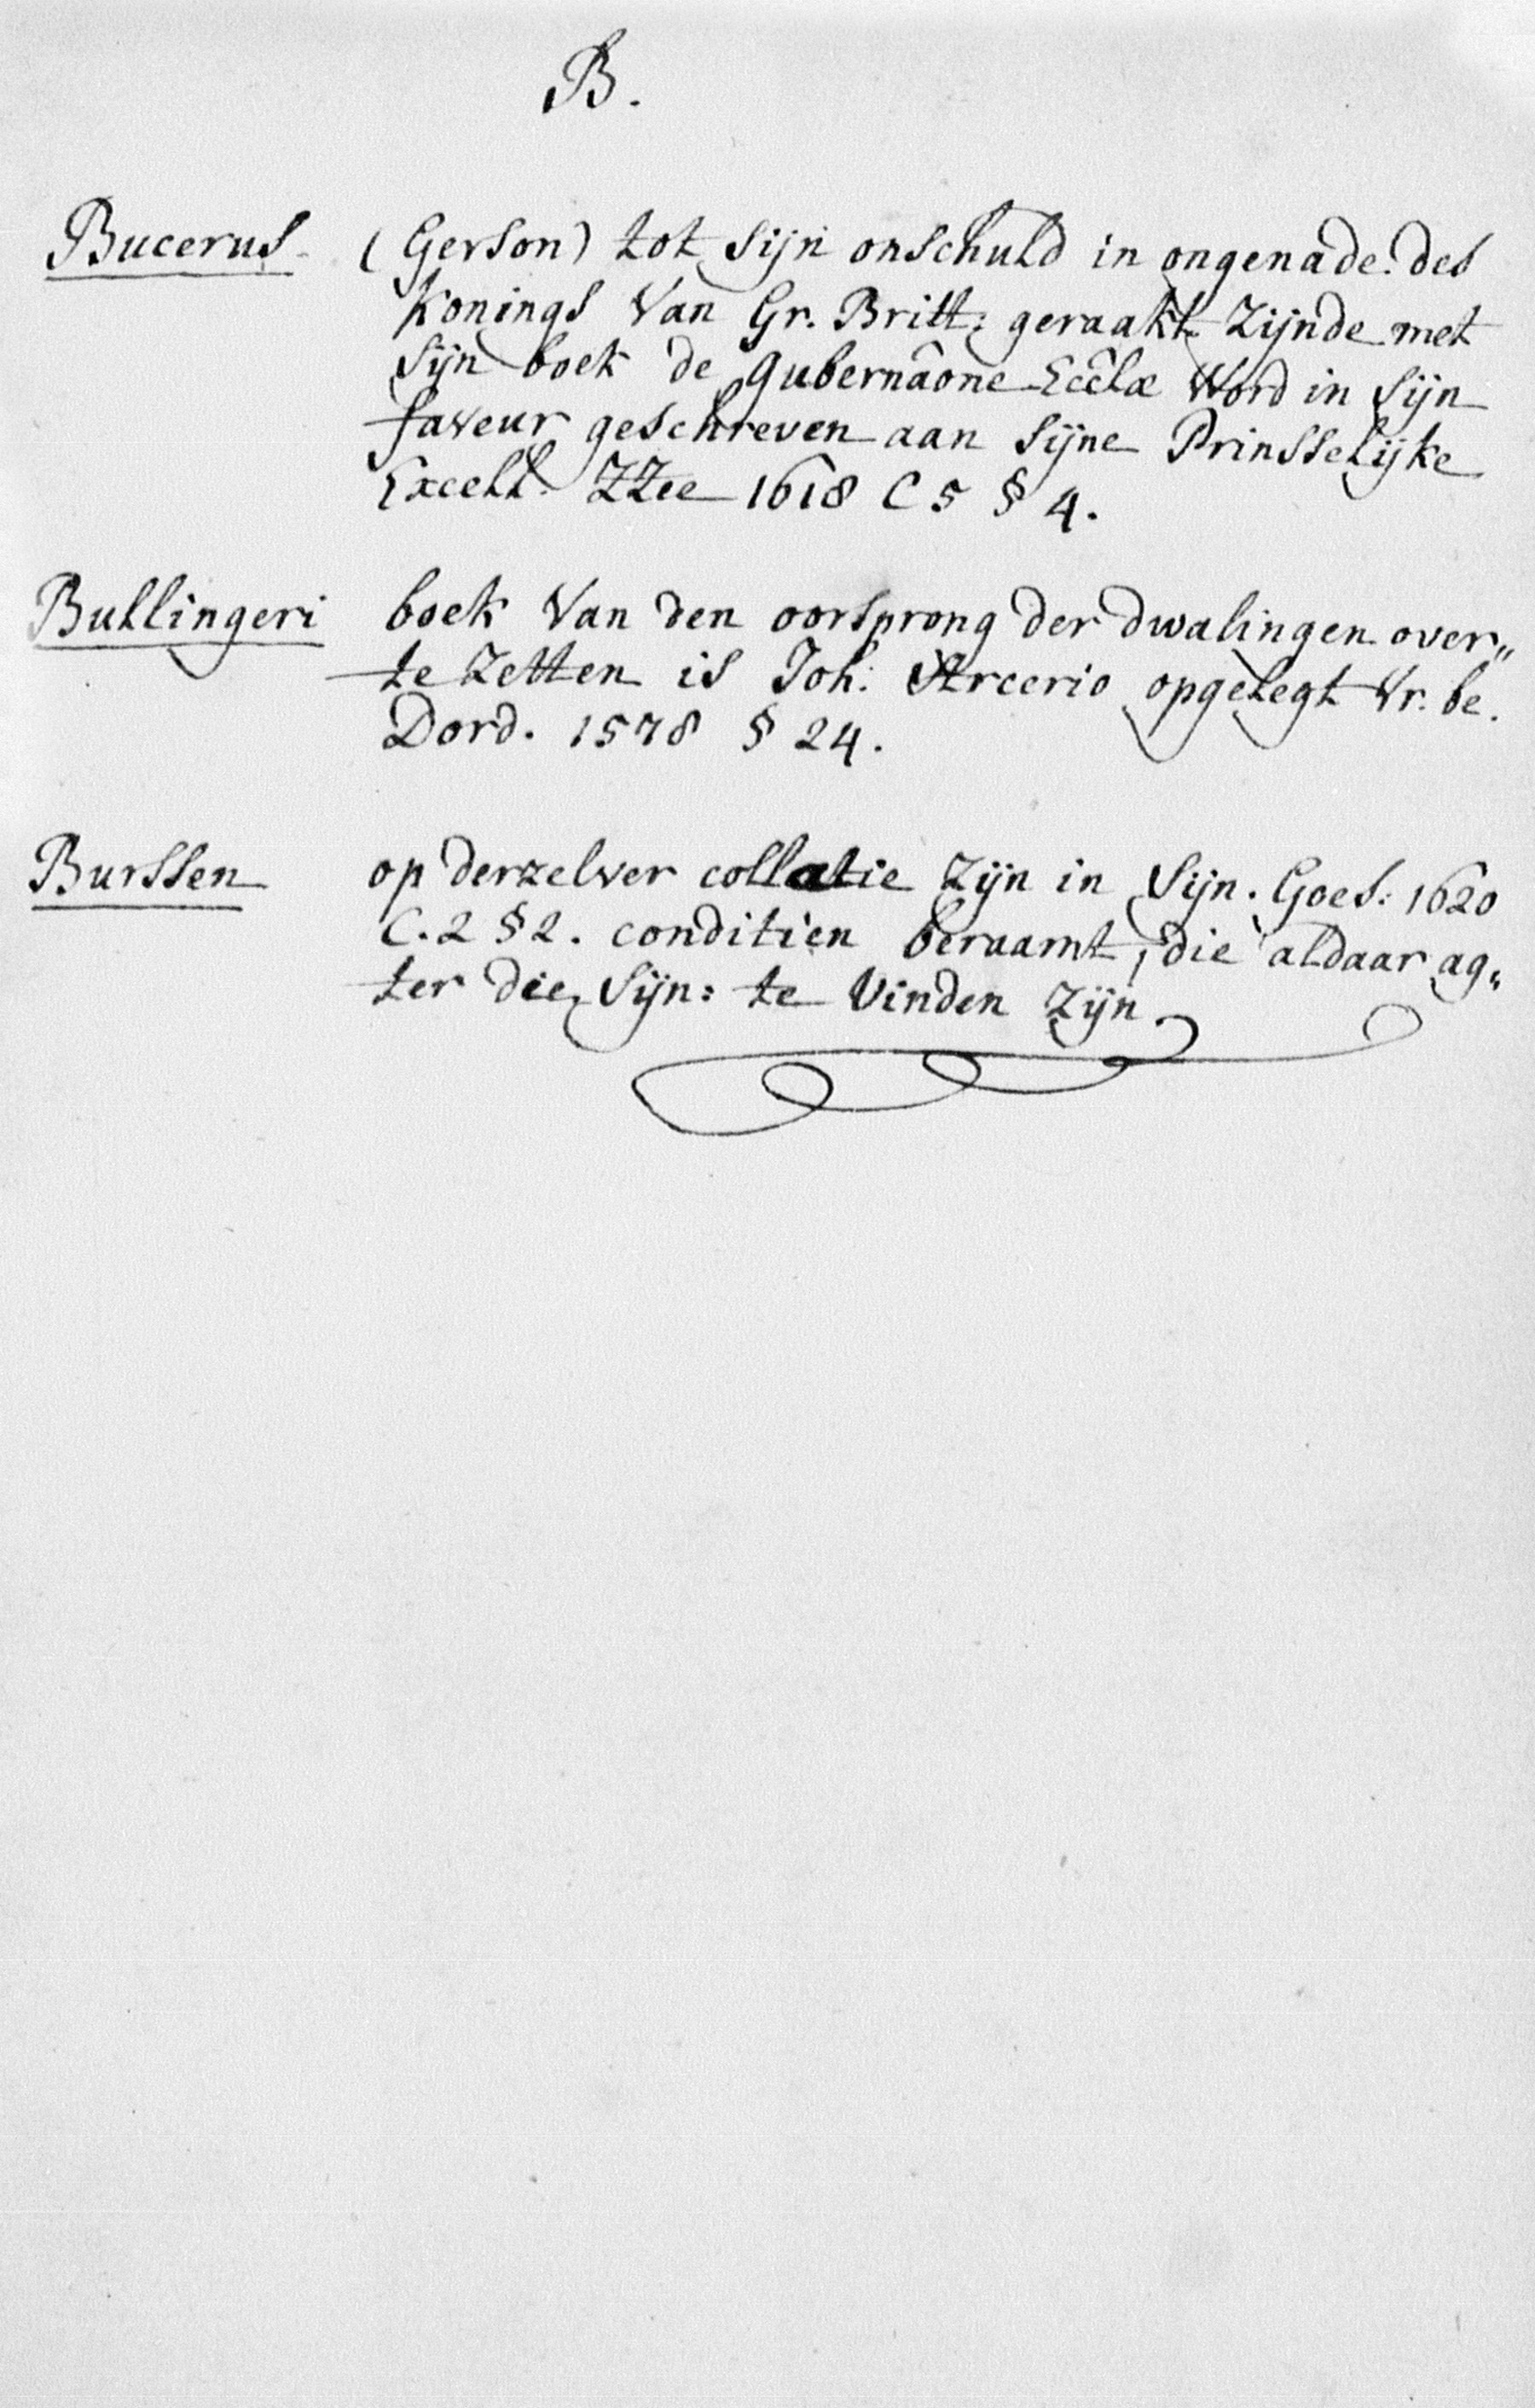 B.
Bucerus (Gerson) tot sijn onschuld in ongenade des
Konings van Gr. Britt: geraakt zijnde met
sijn boek de gubernâone Ecclæ word in sijn
faveur geschreven aan sijne Prinsselijke
Excell. ZZee 1618 C 5 § 4.
Bullingeri boek van den oorsprong der dwalingen over„
te zetten is Joh. Arcerio opgelegt Vr. be.
Dord. 1578 § 24.
Burssen op derzelver collatie zijn in Sijn. Goes: 1620
C. 2 § 2. conditien beraamt, die aldaar ag„
ter die Sijn: te vinden zijn.